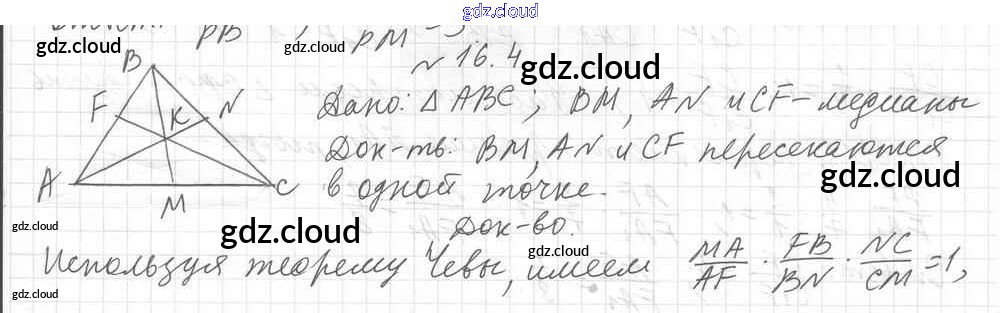 gdz.cloud
PB PM
№ 16.4
B
F K N
A C
M
Дано: △ ABC; BM, AN и CF – медианы
Док-ть: BM, AN и CF пересекаются
в одной точке.
Док-во.
Используя теорему Чевы, имеем MA/AF · FB/BN · NC/CM = 1,
gdz.cloud
gdz.cloud
gdz.cloud
gdz.cloud
gdz.cloud
gdz.cloud
gdz.cloud
gdz.cloud
gdz.cloud